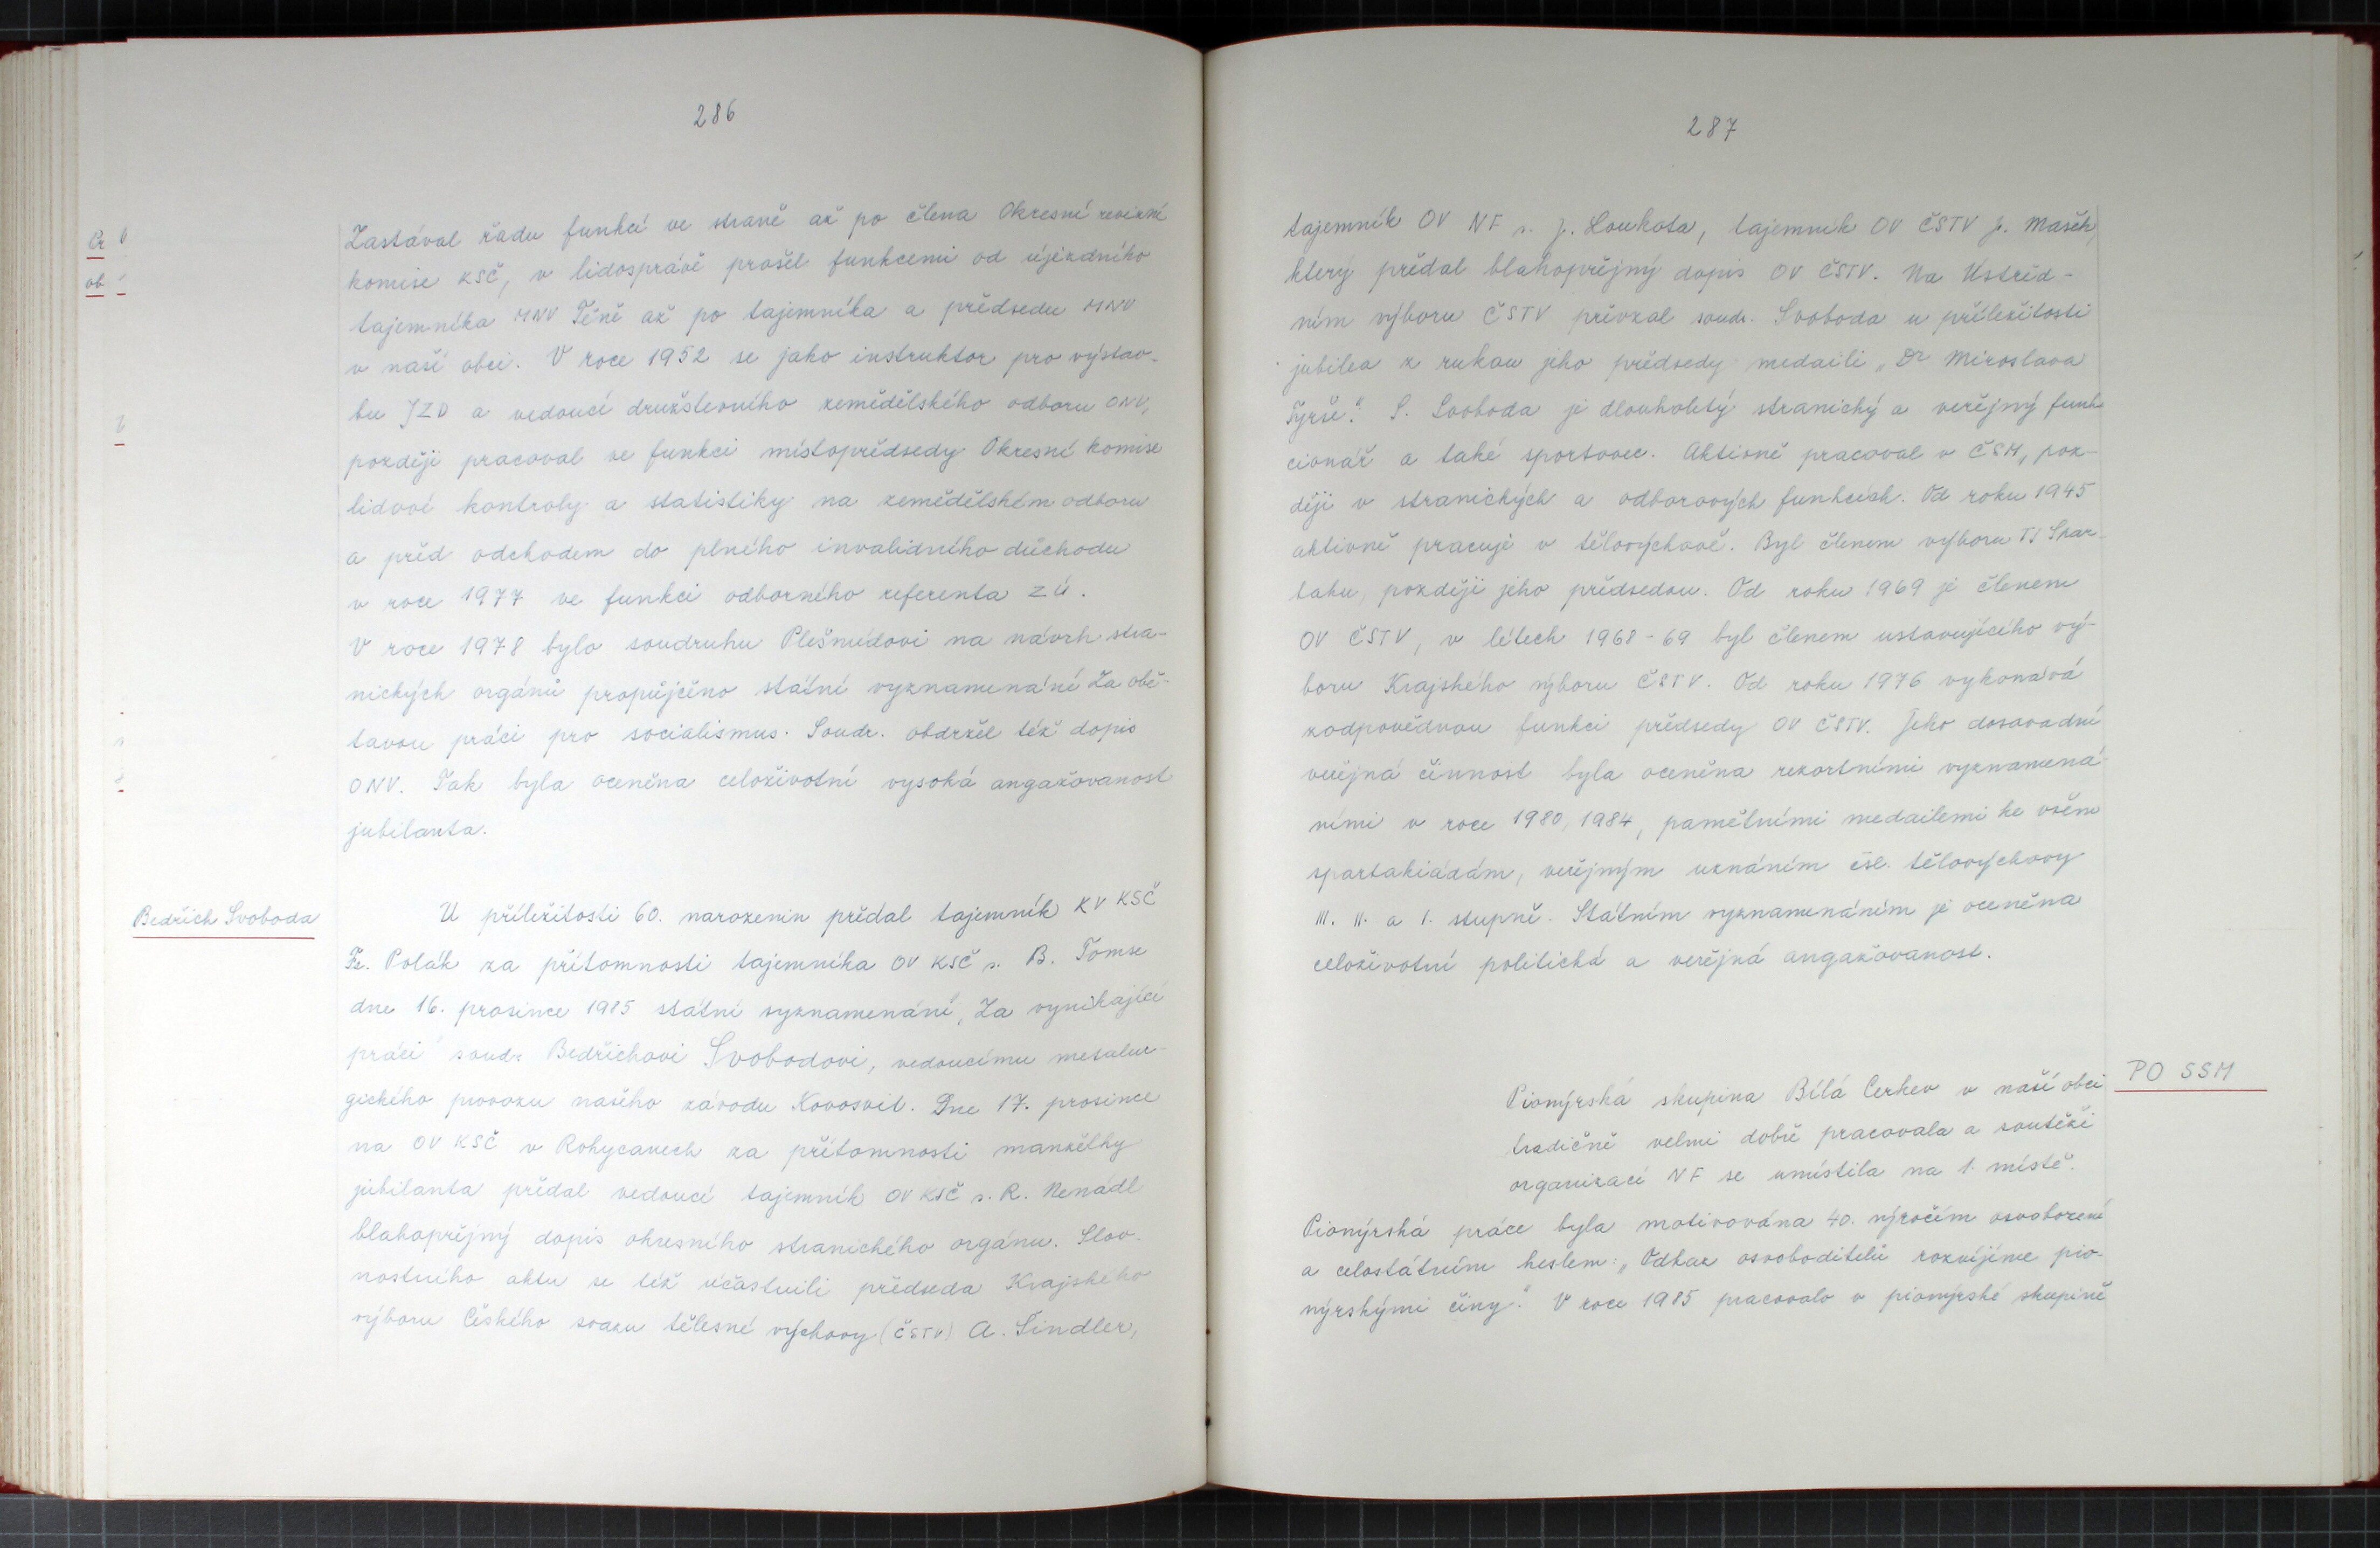 286
Zastával řadu funkcí ve straně až po člena Okresní revizní
komise KSČ, v lidosprávě prošel funkcemi od újezdního
tajemníka MNV Těně až po tajemníka a předsedu MNV
v naší obci. V roce 1952 se jako instruktor pro výstav-
bu JZD a vedoucí družstevního zemědělského odboru ONV,
později pracoval ve funkci místopředsedy Okresní komise
lidové kontroly a statistiky na zemědělském odboru
a před odchodem do plného invalidního důchodu
v roce 1977 ve funkci odborného referenta ZÚ.
V roce 1978 bylo soudruhu Plešmídovi na návrh stra-
nických orgánů propůjčeno státní vyznamenání Za obě-
tavou práci pro socialismus. Soudr. obdržel též dopis
ONV. Tak byla oceněna celoživotní vysoká angažovanost
jubilanta.
Bedřich Svoboda
U příležitosti 60. narozenin předal tajemník KV KSČ
Fr. Polák za přítomnosti tajemníka OV KSČ s. B. Tomse
dne 16. prosince 1985 státní vyznamenání „Za vynikající
práci" soudr. Bedřichovi Svobodovi, vedoucímu metalur-
gického provozu našeho závodu Kovosvit. Dne 17. prosince
na OV KSČ v Rokycanech za přítomnosti manželky
jubilanta předal vedoucí tajemník OV KSČ s. R. Nenadl
blahopřejný dopis okresního stranického orgánu. Slav-
nostního aktu se též účastnili předseda Krajského
výboru Českého svazu tělesné výchovy (ČSTV) A. Šindler,
287
tajemník OV NF s. J. Loukota, tajemník OV ČSTV J. Mašek,
který předal blahopřejný dopis OV ČSTV. Na Ústřed-
ním výboru ČSTV převzal soudr. Svoboda u příležitosti
jubilea z rukou jeho předsedy medaili „Dr Miroslava
Tyrše". S. Svoboda je dlouholetý stranický a veřejný funk
cionář a také sportovec. Aktivně pracoval v ČSM, poz-
ději v stranických a odborových funkcích. Od roku 1945
aktivně pracuje v tělovýchově. Byl členem výboru TJ Spar-
taku, později jeho předsedou. Od roku 1969 je členem
OV ČSTV, v létech 1968-69 byl členem ustavujícího vý-
boru Krajského výboru ČSTV. Od roku 1976 vykonává
zodpovědnou funkci předsedy OV ČSTV. Jeho dosavadní
veřejná činnost byla oceněna rezortními vyznamená-
ními v roce 1980, 1984, pamětními medailemi ke všem
spartakiádám, veřejným uznáním čsl. tělovýchovy
III. II. a I. stupně. Státním vyznamenáním je oceněna
celoživotní politická a veřejná angažovanost.
PO SSM
Pionýrská skupina Bílá Cerkev v naší obci
tradičně velmi dobře pracovala a soutěži
organizací NF se umístila na 1. místě.
Pionýrská práce byla motivována 40. výročím osvobození
a celostátním heslem: „Odkaz osvoboditelů rozvíjíme pio-
nýrskými činy." V roce 1985 pracovalo v pionýrské skupině